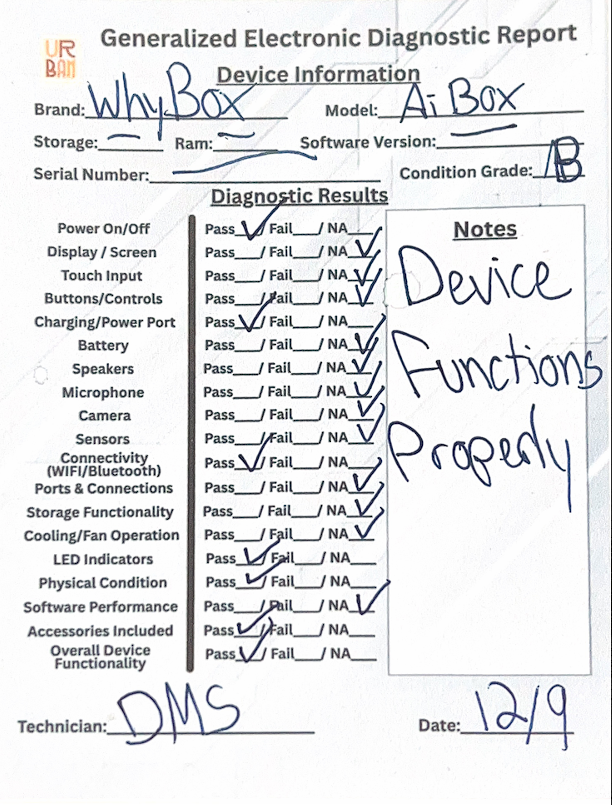 UR
BAN
Generalized Electronic Diagnostic Report
Device Information
Brand: WhyBox Model: Ai Box
Storage: — Ram: — Software Version: —
Serial Number: — Condition Grade: B
Diagnostic Results
Notes
Power On/Off Pass ✓/ Fail__/ NA__
Display / Screen Pass__/ Fail__/ NA ✓
Touch Input Pass__/ Fail__/ NA ✓
Buttons/Controls Pass__/ Fail__/ NA ✓
Charging/Power Port Pass ✓/ Fail__/ NA__
Battery Pass__/ Fail__/ NA ✓
Speakers Pass__/ Fail__/ NA ✓
Microphone Pass__/ Fail__/ NA ✓
Camera Pass__/ Fail__/ NA ✓
Sensors Pass__/ Fail__/ NA ✓
Connectivity
(WIFI/Bluetooth) Pass ✓/ Fail__/ NA__
Ports & Connections Pass__/ Fail__/ NA ✓
Storage Functionality Pass__/ Fail__/ NA ✓
Cooling/Fan Operation Pass__/ Fail__/ NA ✓
LED Indicators Pass ✓/ Fail__/ NA__
Physical Condition Pass ✓/ Fail__/ NA__
Software Performance Pass__/ Fail__/ NA ✓
Accessories Included Pass ✓/ Fail__/ NA__
Overall Device
Functionality Pass ✓/ Fail__/ NA__
Device
Functions
Properly
Technician: DMS Date: 12/9